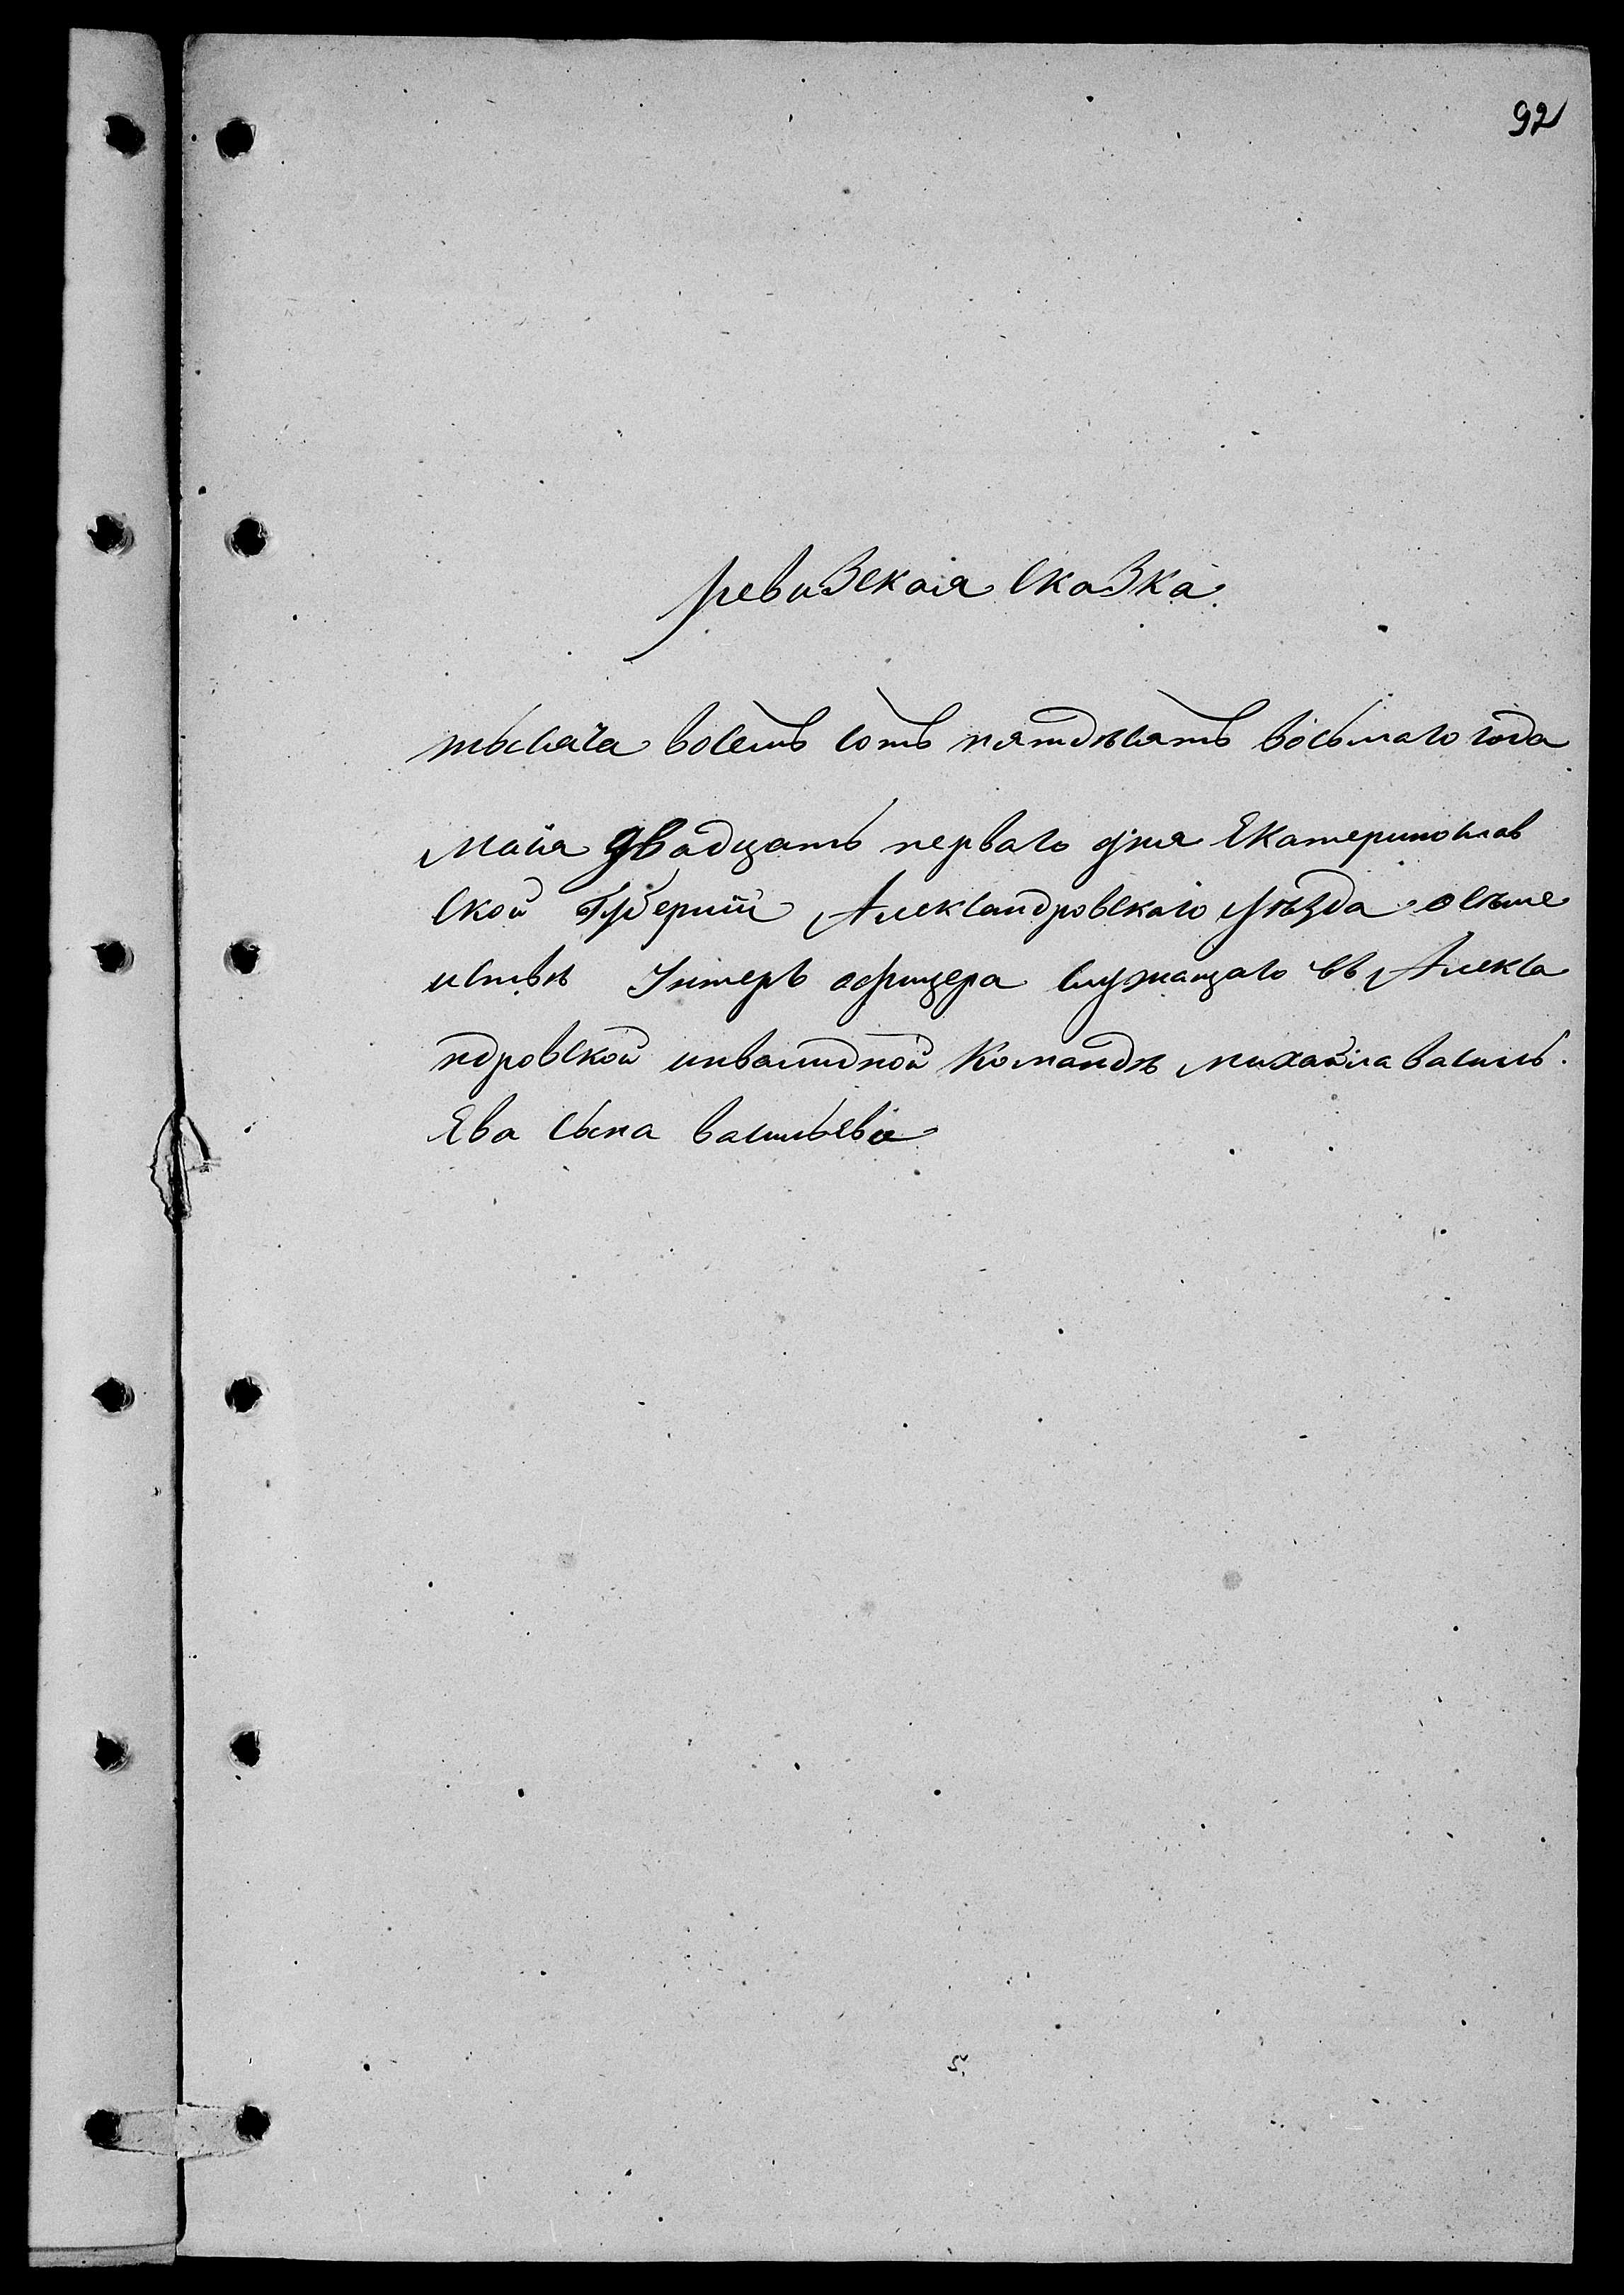 92
ревизская сказка.
тысяча восемь сотъ пятдѣсятъ восьмаго года
маія двадцать перваго дня Екатеринослав
ской Губерніи Александровскаго уѣзда о сѣме
иствѣ Унтеръ офицера служащаго въ Алекса
ндровской инвалидной Командѣ михайла василь
Ева сына васильева